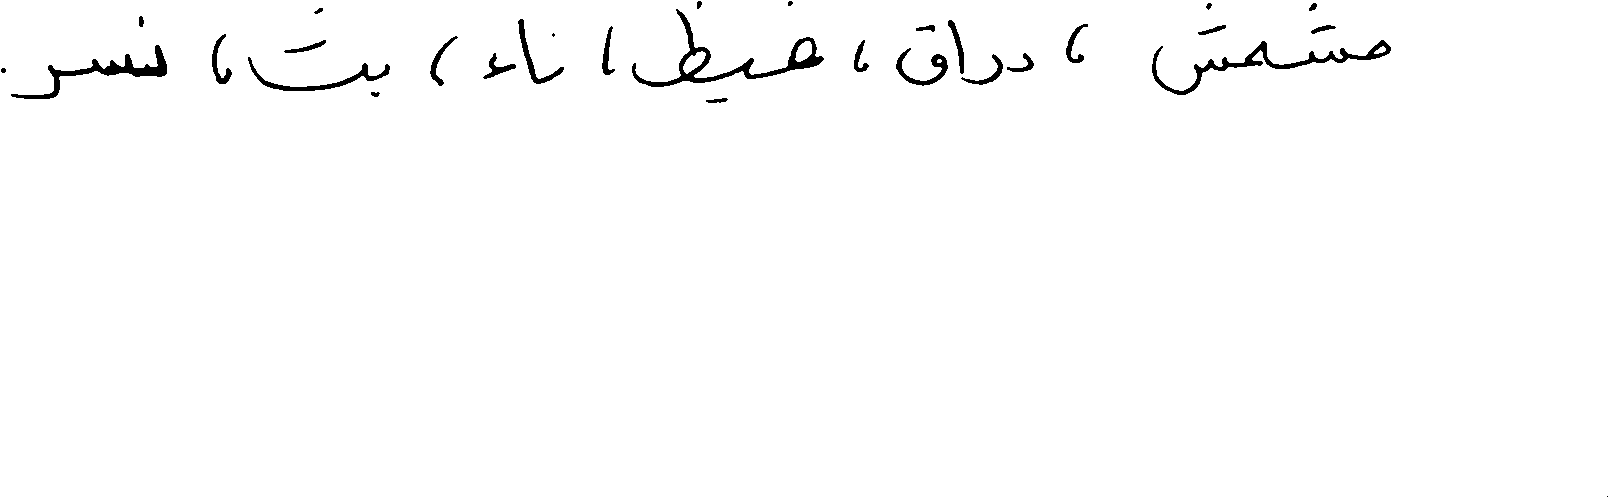 مشمش، دراق، غيظ، ناء، بث، نسر.